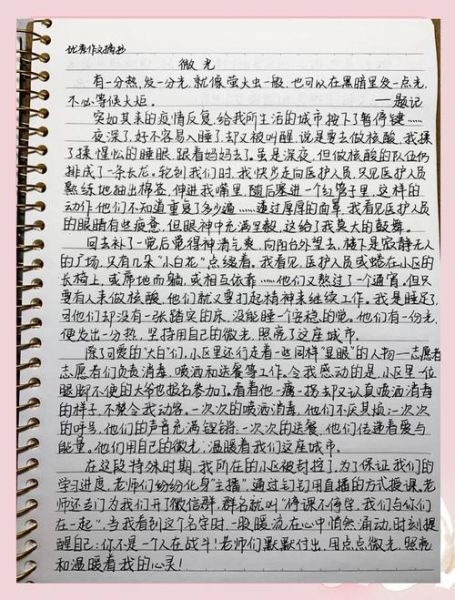 优秀作文摘抄
微光
有一分热，发一分光，就像萤火虫一般，也可以在黑暗里发一点光，
不必等候火炬。——题记
突如其来的疫情反复，给我所生活的城市按下了暂停键……
夜深了，好不容易入睡了，却又被叫醒，说是要去做核酸，我揉
了揉惺忪的睡眼，跟着妈妈去了。虽是深夜，但做核酸的队伍仍
排成了一条长龙。轮到我们时，我快步走向医护人员，只见医护人员
熟练地抽出棉签，伸进我嘴里，随后塞进一个红管子里，这样的
动作他们不知道重复了多少遍……透过厚厚的面罩，我看见医护人员
的眼睛有些疲惫，但眼神中充满坚毅，这给了我莫大的鼓舞。
回去补了一觉后觉得神清气爽，向阳台外望去，楼下是寂静无人
的广场，只有几朵“小白花”点缀着。我看见，医护人员或蜷在小区的
长椅上，或席地而躺，或相互依靠……他们又熬过了一个通宵。但只
要有人来做核酸，他们就又要打起精神来继续工作。我是睡足了，
可他们却没有一张踏实的床，没能睡一个安稳的觉。他们有一份光，
便发出一分热，坚持用自己的微光，照亮了这座城市。
除了可爱的“大白”们，小区里还行走着一些同样“显眼”的人物—志愿者
志愿者们负责消毒、喷洒和送餐等工作。令我感动的是，小区里一位
腿脚不便的大爷也报名参加了。看着他一瘸一拐却又认真喷洒消毒
的样子，不禁令我动容。一次次的喷洒消毒，他们不厌其烦；一次次
的呼号，他们的声音充满铿锵；一次次的送餐，他们传递着爱与
能量。他们用自己的微光，温暖着我们这座城市。
在这段特殊时期，我所在的小区被封控了，为了保证我们的
学习进度，老师们纷纷化身“主播”，通过钉钉用直播的方式授课。老
师还专门为我们开了微信群，群名就叫“停课不停学，我们与你们
在一起”，当我看到这个名字时，一股暖流在心中悄然涌动，时刻提
醒自己：你不是一个人在战斗！老师们默默付出，用点点微光，照亮
和温暖着我的心灵！